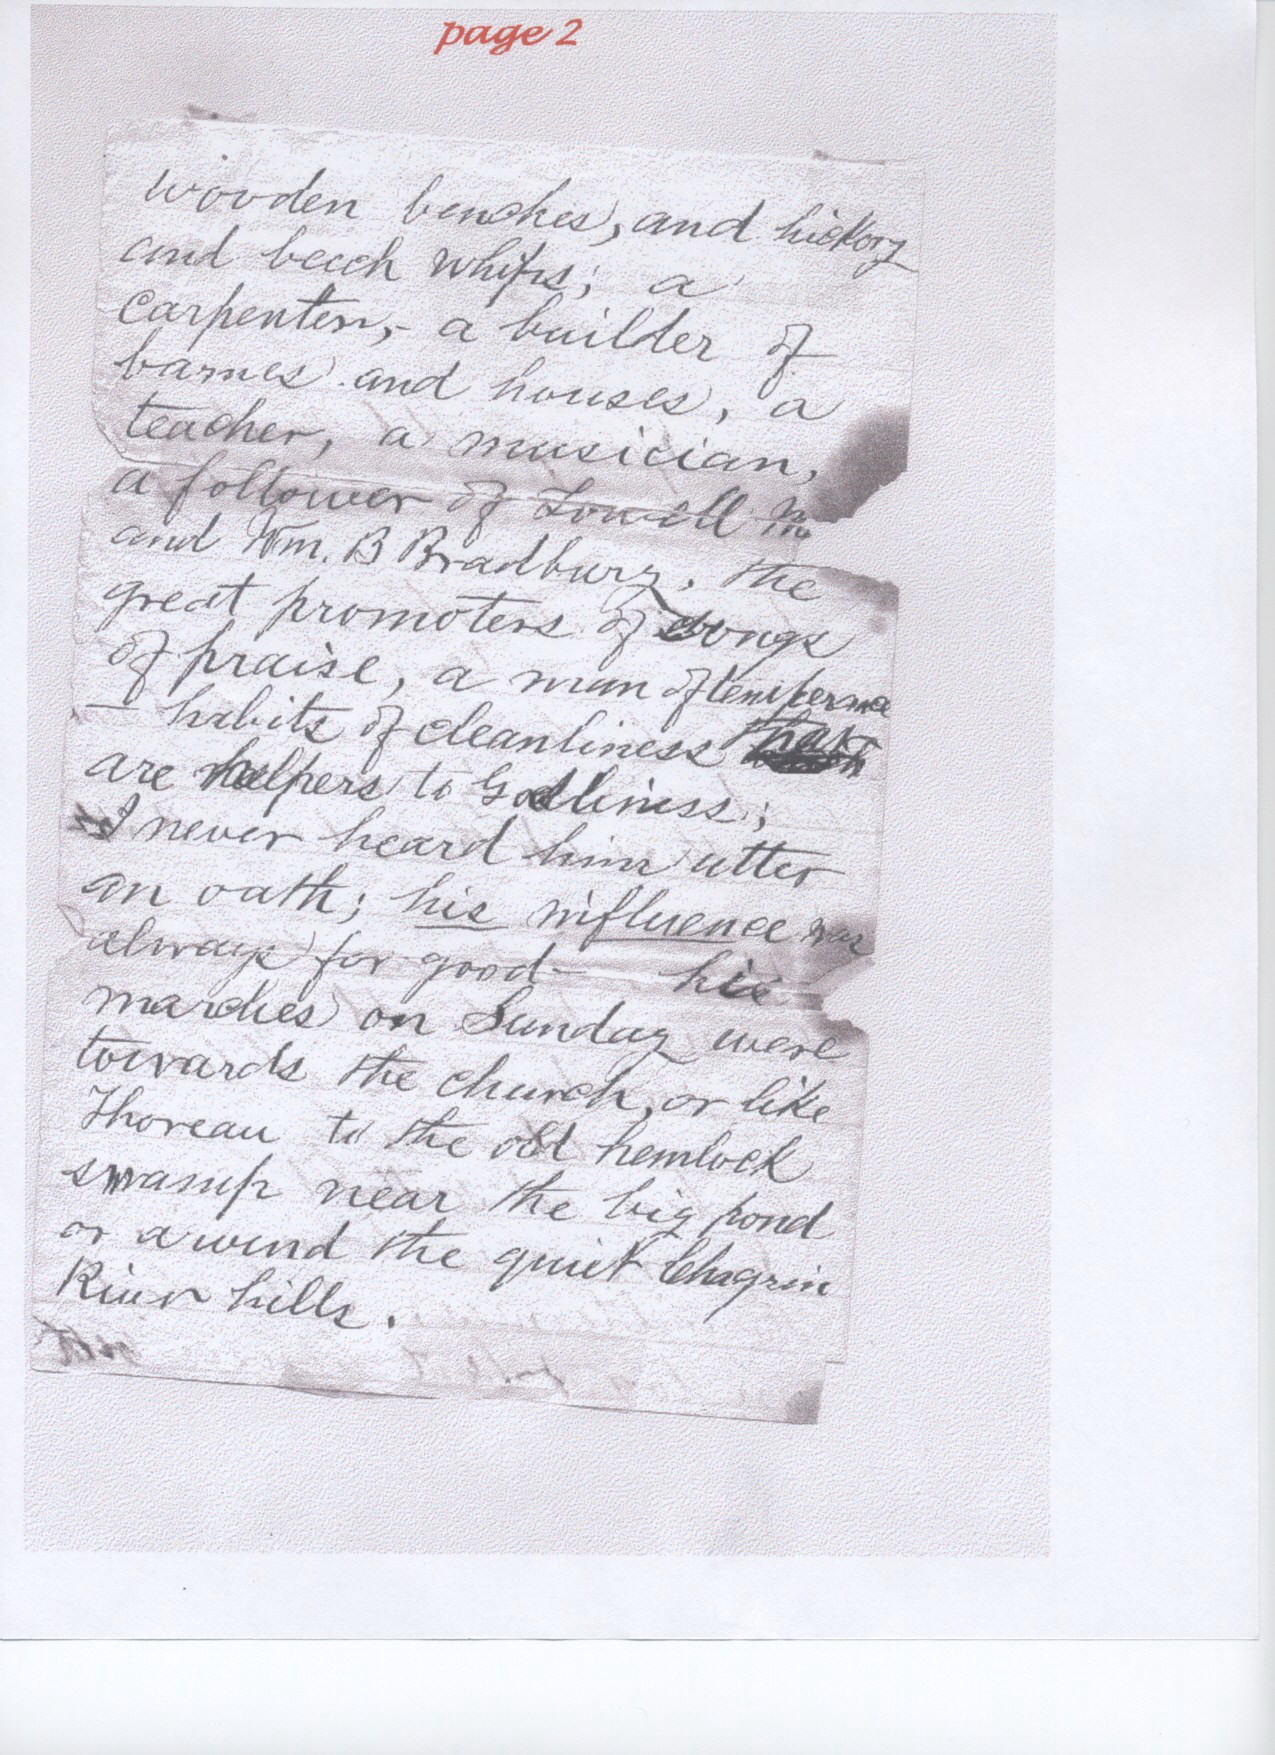 page 2
wooden benches, and hickory
and beech whips; a
carpenter, - a builder of
barnes and houses, a
teacher, a musician,
a follower of Lowell M
and Wm. B Bradbury, the
great promoters of songs
of praise, a man of temperance
— habits of cleanliness that
are helpers to Godliness;
I never heard him utter
an oath; his influence was
always for good — his
marches on Sunday were
towards the church, or like
Thoreau to the old hemlock
swamp near the big pond
or around the quiet Chagrin
River hills.